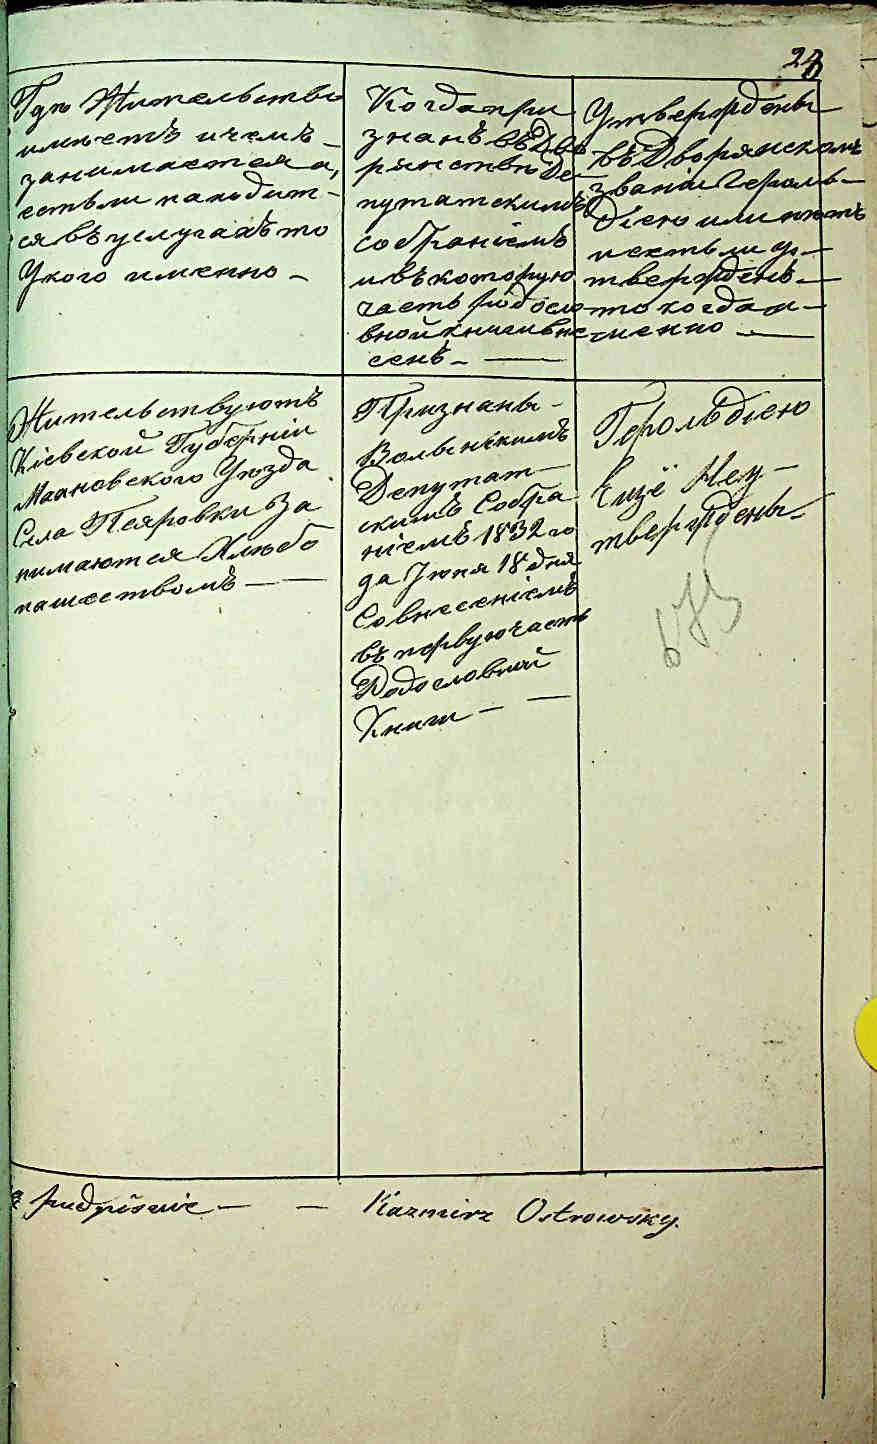 24
Гдѣ Жительство
имѣетъ и чемъ
занимается а,
естьли находит-
ся въ услугахъ то
у кого именно —
Когда при
знанъ въ Дво
рянствѣ Де-
путатскимъ
собраніемъ
и въ которую
часть родосло
вной книги вне
сенъ —
Утверждены
въ Дворянскомъ
званіи Героль-
діею или нѣтъ
и естьли у-
твержденъ
то когда и-
менно —
Жительствуютъ
Кіевской Губерніи
Махновского Уѣзда
Села За
нимаются Хлѣбо
пашествомъ —
Признаны
Волынскимъ
Депутат-
скимъ Собра
ніемъ 1832 го
да Іюня 18 дня
Со внесеніемъ
въ первую часть
Родословной
Книги —
Герольдіею
Ещё Неу-
тверждены
Kazmirz Ostrowsky.